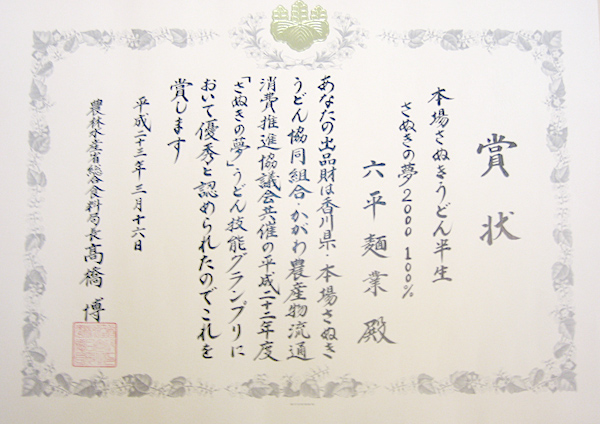 賞状
本場さぬきうどん半生
さぬきの夢2000 100%
六平麺業殿
あなたの出品財は香川県・本場さぬき
うどん協同組合・かがわ農産物流通
消費推進協議会共催の平成二十二年度
「さぬきの夢」うどん技能グランプリに
おいて優秀と認められたのでこれを
賞します
平成二十三年三月十六日
農林水産省総合食料局長 髙橋博